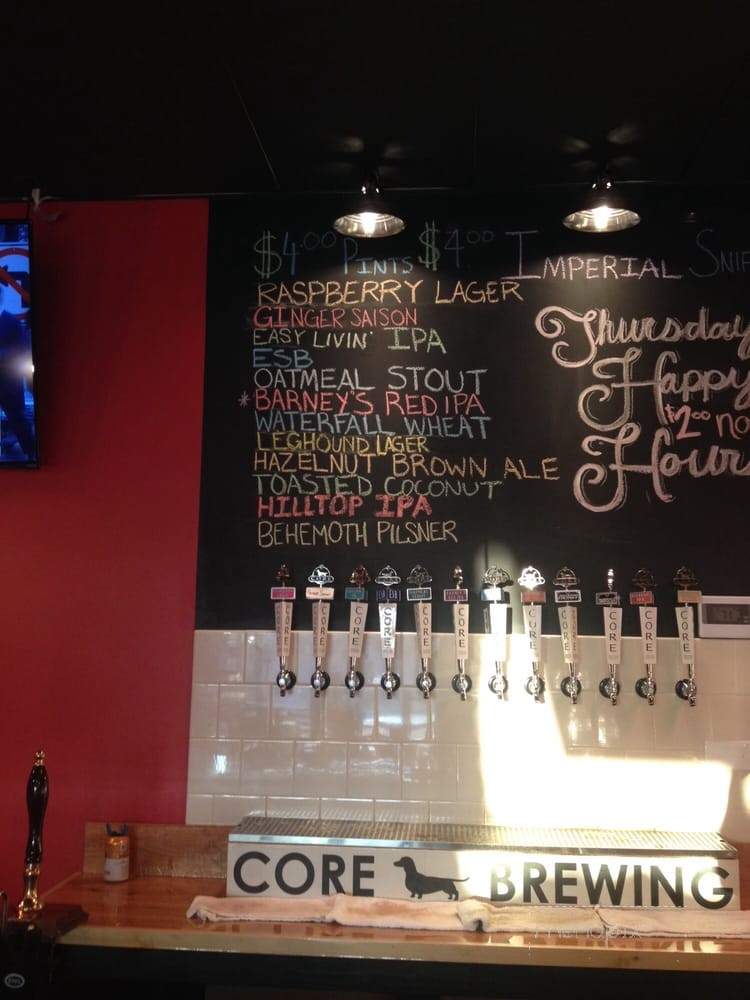 $4.00 PINTS $4.00 IMPERIAL
RASPBERRY LAGER
GINGER SAISON
EASY LIVIN' IPA
ESB
OATMEAL STOUT
*BARNEY'S RED IPA
WATERFALL WHEAT
LEGHOUND LAGER
HAZELNUT BROWN ALE
TOASTED COCONUT
HILLTOP IPA
BEHEMOTH PILSNER
Thursday
Happy
$2.00
Hour
CORE CORE CORE CORE CORE CORE CORE CORE CORE CORE CORE
CORE BREWING